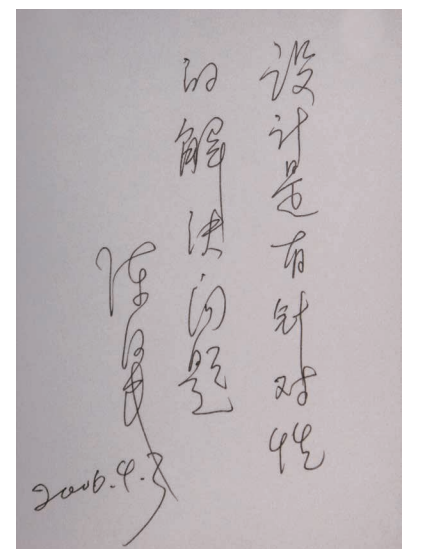 设计是有针对性
的解决问题
陈
2006.4.3